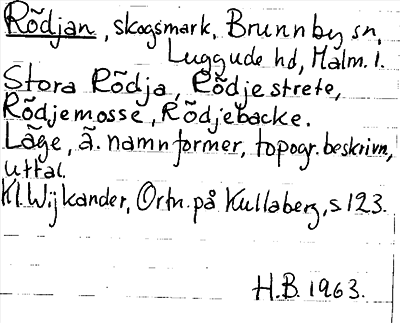 Rödjan, skogsmark, Brunnby sn,
Luggude hd, Malm. l.
Stora Rödja, Rödjestrete,
Rödjemosse, Rödjebacke.
Läge, ä. namnformer, topogr. beskrivn,
uttal.
Kl. Wijkander, Ortn. på Kullaberg, s. 123.
H.B. 1963.